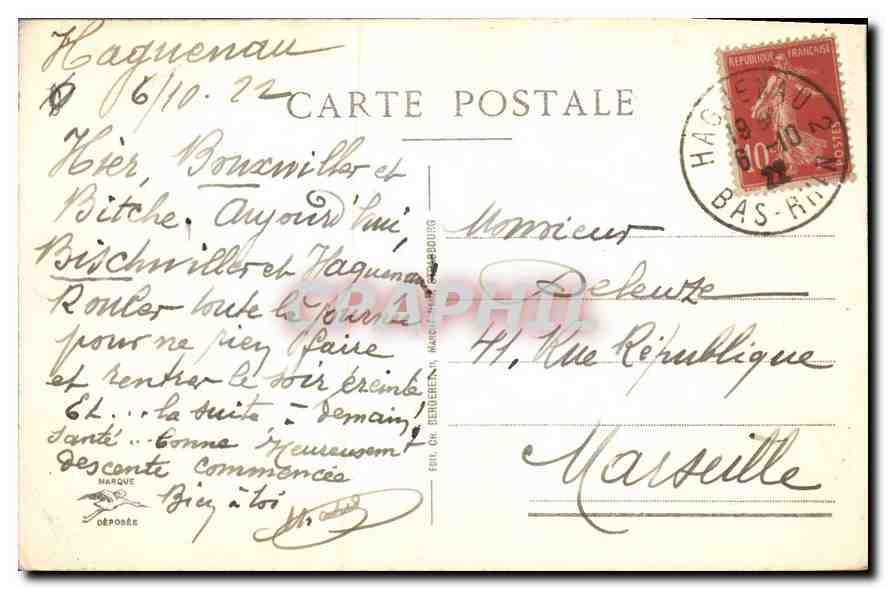 Haguenau
6/10.22
CARTE POSTALE
Hier, Bouxwiller et
Bitche. Aujourd'hui,
Bischwiller et Haguenau!
Rouler toute la journée
pour ne rien faire
et rentrer le soir éreinté
Et... la suite à demain!
Santé.. bonne Heureusemt
descente commencée
Bien à toi
MARQUE
DÉPOSÉE
EDIT. CH. BERGERET
STRASBOURG
RÉPUBLIQUE FRANÇAISE
10c
POSTES
HAGUENAU
19
6-10
22
BAS-RHIN
Monsieur
Deleuze
41, Rue République
Marseille
CPAPHIL